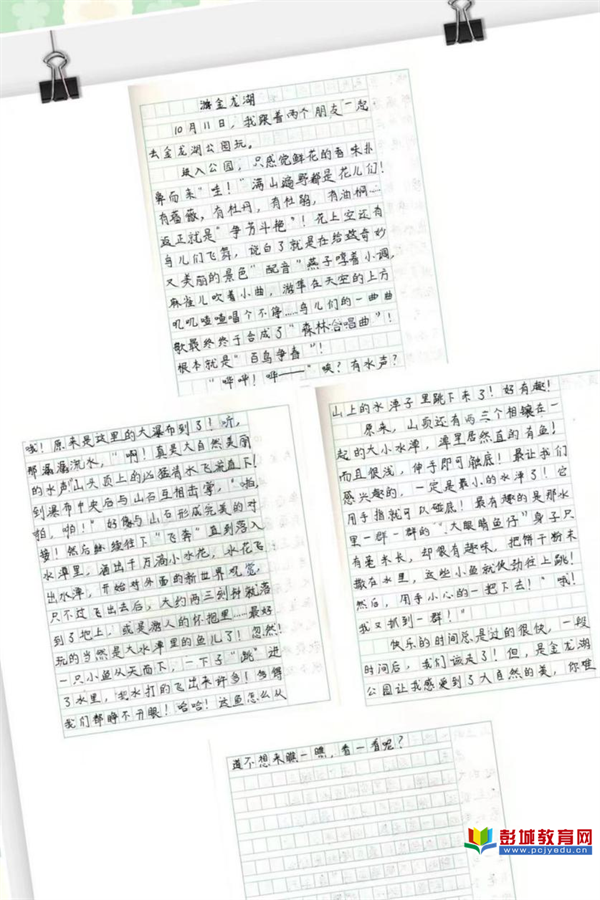 游金龙湖
10月11日,我跟着两个朋友一起
去金龙湖公园玩。
进入公园,只感觉鲜花的香味扑
鼻而来"哇!"满山遍野都是花儿们!
有蔷薇,有牡丹,有杜鹃,有油桐……
返正就是"争芳斗艳"!花上空还有
鸟儿们飞舞,说白了就是在给这奇妙
又美丽的景色"配音"燕子哼着小调,
麻雀儿吹着小曲,游隼在天空的上方
叽叽喳喳唱个不停……鸟儿们的一曲曲
歌最终终于合成了"森林合唱曲"!
根本就是"百鸟争春"!
"哗哗!哗——"咦?有水声?
哦!原来是这里的大瀑布到了!听,
那潺潺流水,"啊!真是大自然美丽
的水声"山头顶上的凶猛清水飞流直下!
到瀑布中央后与山石互相击掌,"啪,
啪,啪!"好像与山石形成完美的对
接!然后继续往下"飞奔"直到落入
水潭里,洒出千万滴小水花,水花飞
出水潭,开始对外面的新世界
只不过飞出去后,大约两三秒钟就落
到了地上,或是游人的怀抱里……最好
玩的当然是大水潭里的鱼儿了!忽然!
一只小鱼从天而下,一下了"跳"进
了水里,把水打的飞出来许多!多得
我们都睁不开眼!哈哈!这鱼怎么从
山上的水潭子里跳下来了!好有趣!
原来,山顶还有两三个相镶在一
起的大小水潭,潭里居然真的有鱼!
而且很浅,伸手即可触底!最让我们
感兴趣的,一定是最小的水潭了!它
用手指就可以碰底!最有趣的是那水
里一群一群的"大眼睛鱼仔"身子只
有毫米长,却很有趣味,把饼干粉末
撒在水里,这些小鱼就使劲往上跳!
然后,用手小心的一把下去!"哦!
我又抓到一群!"
快乐的时间总是过的很快,一段
时间后,我们该走了!但,是金龙湖
公园让我感受到了大自然的美,你难
道不想来瞧一瞧,看一看呢?
彭城教育网
www.pcjyedu.cn